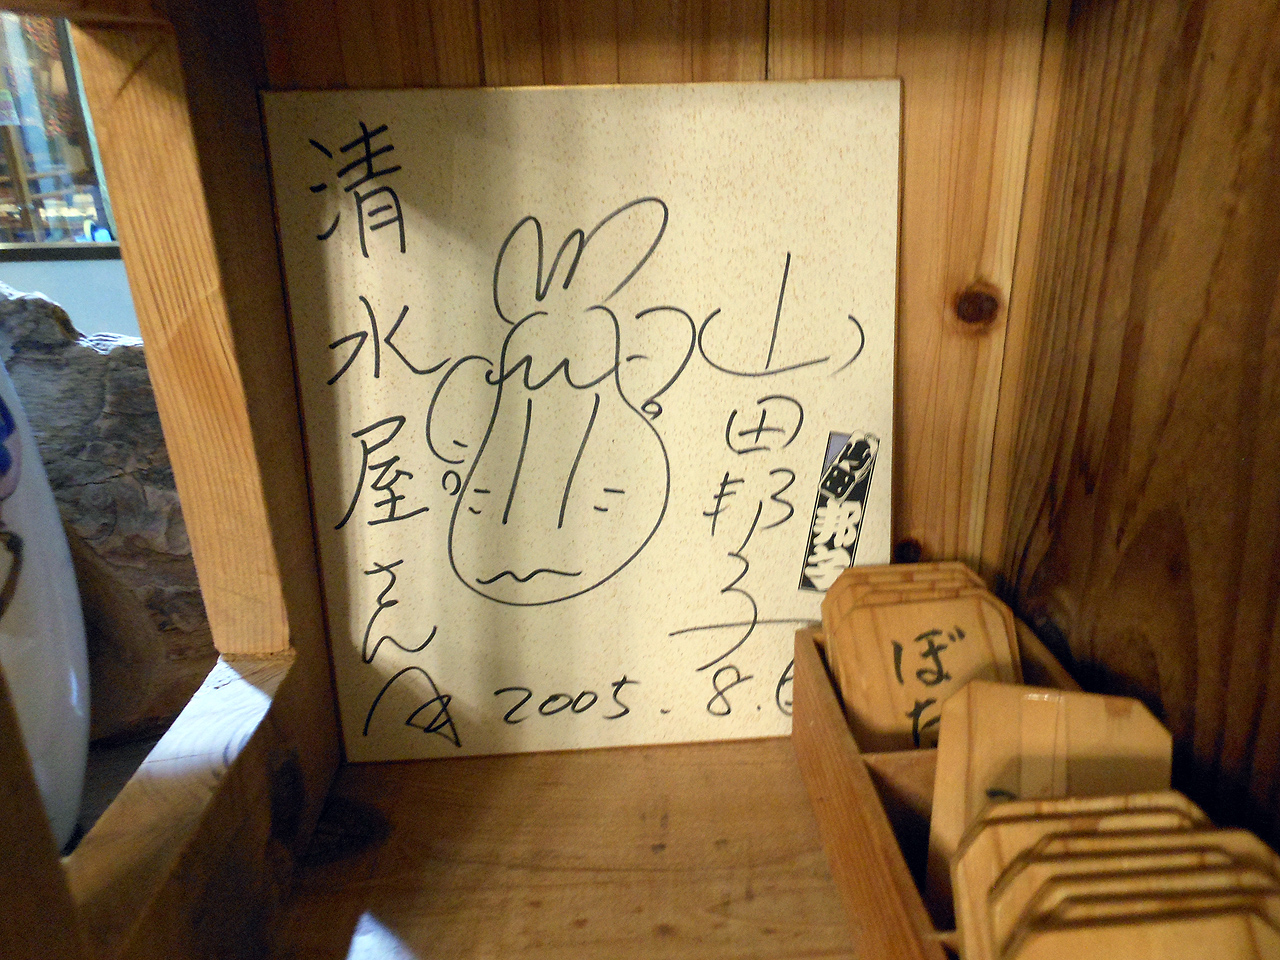 山田邦子
清水屋さん江
2005.8.6
邦子
ぼた